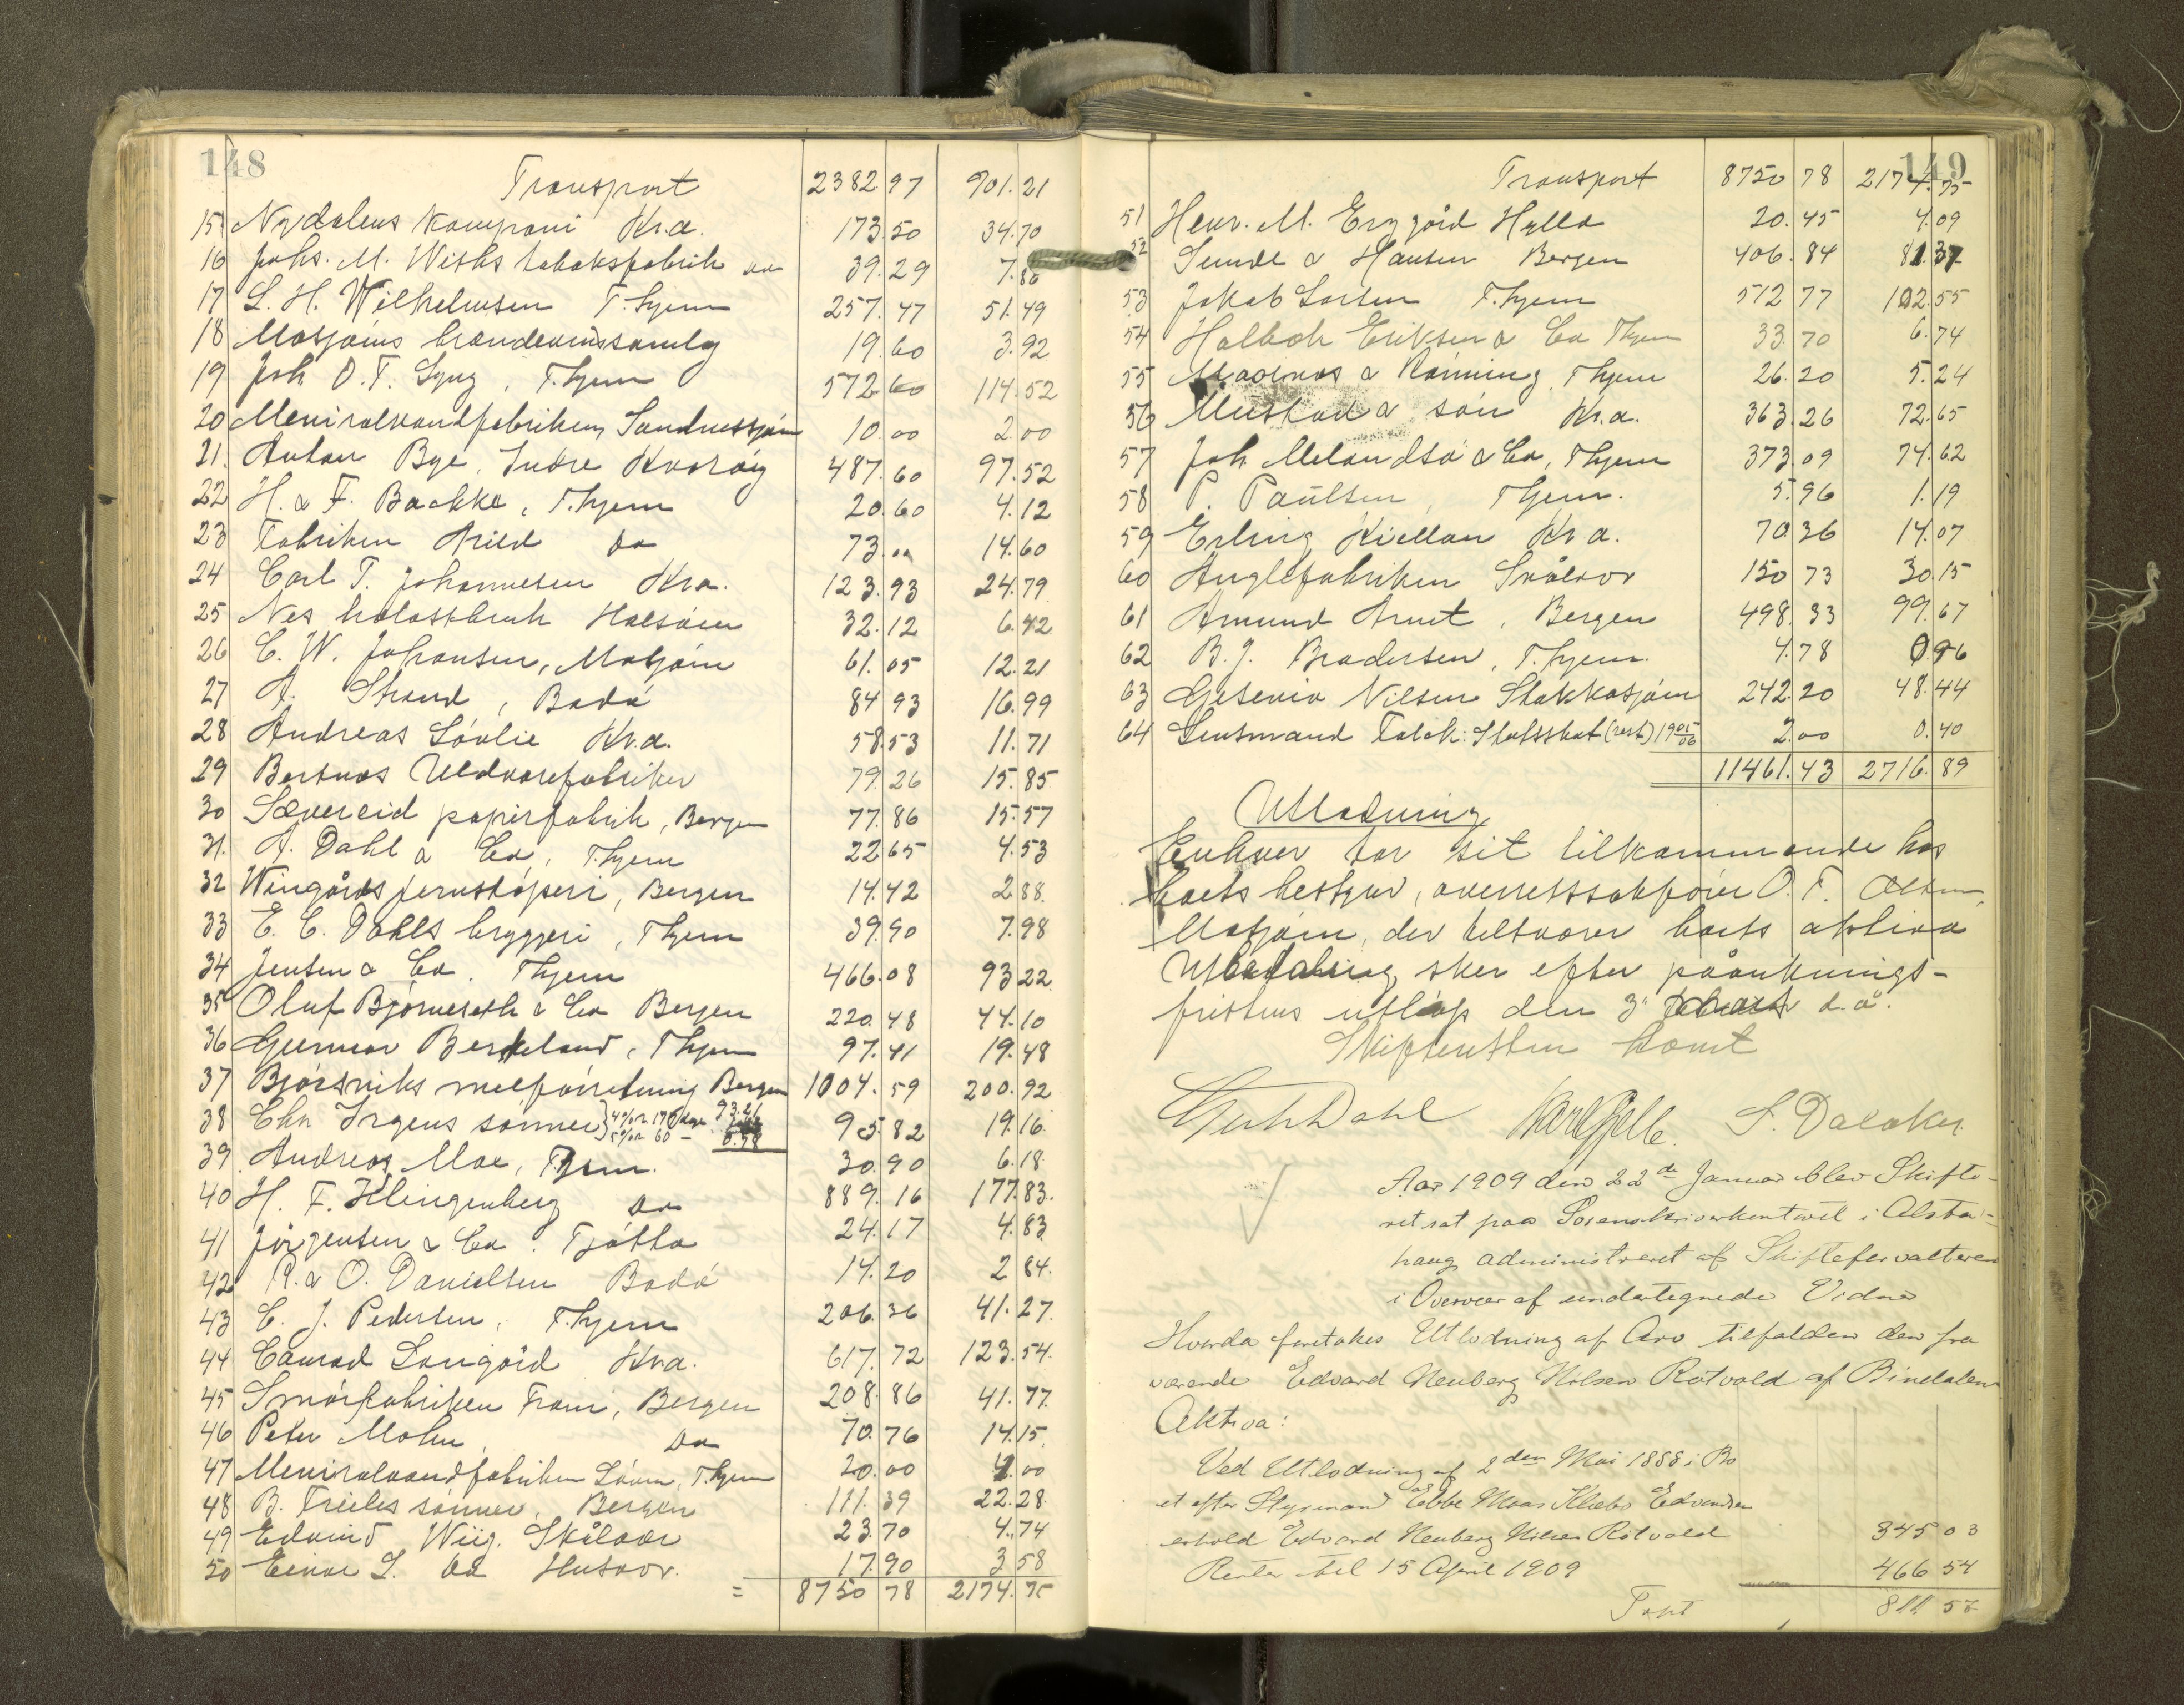 148
Transport 2382 97 901. 21
15 Nydalens Kompani Kr.a. 173 50 34. 70
16 Johs. M. Withs tobaksfabrik do 39. 29 7. 86
17 L. H. Wilhelmsen T.hjem 257. 47 51. 49
18 Mosjøens brændevinssamlag 19. 60 3. 92
19 Joh O. F. Lyng, T.hjem 572 60 114. 52
20 Meniralvandfabriken, Sandnessjøen 10. 00 2. 00
21. Anton Bye, Indre Kvarøy 487. 60 97. 52
22 H. & F. Backke, T.hjem 20. 60 4. 12
23 Fabriken Arild do 73. 00 14. 60
24 Carl T. Johannesen Kra. 123. 93 24. 79
25 Nes Holsøien 32. 12 6. 42
26 C. W. Johansen, Mosjøen 61. 05 12. 21
27 A. Strand, Bodø 84 93 16. 99
28 Andreas Løvlie Kr.a. 58 53 11. 71
29 Bertnes Uldvarefabriker 79. 26 15. 85
30 Sævereid papirfabrik, Bergen 77. 86 15. 57
31. A. Dahl & Co, T.hjem 22 65 4. 53
32 Wingårds jernstøperi, Bergen 14. 42 2 88.
33 E. C. Dahls bryggeri, Thjem 39. 90 7. 98
34 Jensen & Co. Thjem 466. 08 93 22
35 Oluf Bjørneseth & Co Bergen 220. 48 44. 10
36 Gunnar Berkeland, Thjem 97. 41 19. 48
37 Bjørsviks melforretning Bergen 1004. 59 200. 92
38 Chr Irgens sønner} 4 % 176 dage 93.21 95. 82 19. 16.
5 % 60 —
39. Andreas Moe, T.hjem. 30. 90 6. 18
40 H. F. Klingenberg do 889. 16 177. 83.
41 Jørgensen & Co. Tjøtta 24. 17 4. 83
42 R. & O. Danielsen Bodø 14. 20 2 84.
43 C. J. Pedersen, T.hjem 206. 36 41. 27.
44 Conrad Langård Kra. 617. 72 123. 54.
45 Smørfabriken Fram, Bergen 208. 86 41. 77.
46 Peter Mohn, do 70. 76 14. 15.
47 Meniralvandfabriken Løven, T.hjem 20. 00 4. 00
48 B. Frieles sønner, Bergen 111. 39 22. 28.
49 Edvind Wiig. Skålvær 23. 70 4. 74
50 Einar L. do Husvær. 17. 90 3 58
= 8750 78 2174. 75
149
Transport 8750 78 2174. 75
51 Henr. M. Hylla 20. 45 4. 09
52 Sunde & Hansen Bergen 406. 84 81. 37
53 Jakob Larsen T.hjem 512 77 102. 55
54 Halbch Eriksen & Co Thjem 33. 70 6. 74
55 & Rønning, Thjem 26. 20 5. 24
56 Mustad & søn Kr.a. 363. 26 72. 65
57 Joh Melandsø & Co, Thjem 373 09 74. 62
58 P. Paulsen, Thjem. 5. 96 1. 19
59 Erling Kiellan Kr a. 70. 36 14. 07
60 Anglefabriken Svolvær 150 73 30. 15
61 Amund Arnt, Bergen 498. 33 99. 67
62 B. J. Brodersen, T.hjem. 4. 78 0. 96
63 Nilsen Stokkasjøen 242. 20 48. 44
64 Lensmand Falck: Statsskat (rest) 1905/06 2. 00 0. 40
11461. 43 2716. 89
Utlodning
Enhver tar sit tilkommende hos
boets bestyrer, overretssakfører O. T. Olsen,
Mosjøen, der tilsvarer boets aktiva
Utbetaling sker efter påanknings-
fristens utløp den 3" d. å".
Skifteretten hævet
Dahl S. Daløker
Aar 1909 den 22de Januar blev Skifte-
ret sat paa Sorenskriverkontoret i Alsta-
haug administreret af Skifteforvalteren
i Overvær af undertegnede Vidne
Hvorda foretakes Utlodning af Arv tilfalden den fra
værende Edvard Neuberg Nilsen Rotvold af Bindalen
Aktiva:
Ved Utlodning af 2den Mai 1888 i Bo
et efter Styrmand Ebbe Moas Klæbo Edvardsen
erhold Edvard Neuberg Nilsen Rotvold 345 03
Renter til 15 April 1909 466 54
Tpst 811 57